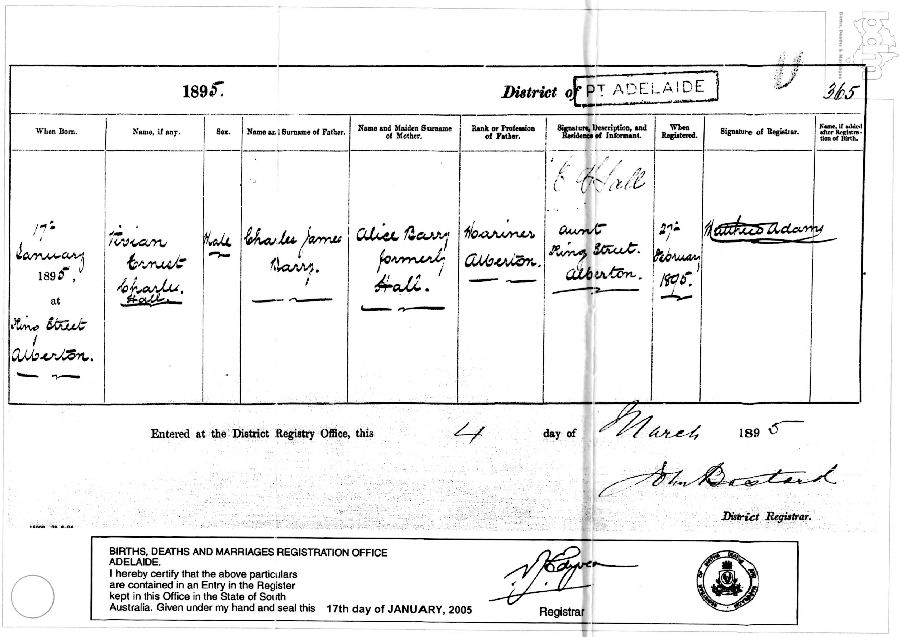 1895.
District of PT ADELAIDE
365
When Born.
Name, if any.
Sex.
Name and Surname of Father.
Name and Maiden Surname
of Mother.
Rank or Profession
of Father.
Signature, Description, and
Residence of Informant.
When
Registered.
Signature of Registrar.
Name, if added
after Registra-
tion of Birth.
17th
January
1895,
at
King Street
Alberton.
Vivian
Ernest
Charles
Hall.
Male
Charles James
Barry.
Alice Barry
formerly
Hall.
Mariner
Alberton.
E Hall
aunt
King Street.
Alberton.
27th
February
1895.
Matthew Adams
Entered at the District Registry Office, this 4 day of March 1895
John Bostard
District Registrar.
BIRTHS, DEATHS AND MARRIAGES REGISTRATION OFFICE
ADELAIDE.
I hereby certify that the above particulars
are contained in an Entry in the Register
kept in this Office in the State of South
Australia. Given under my hand and seal this 17th day of JANUARY, 2005
Registrar